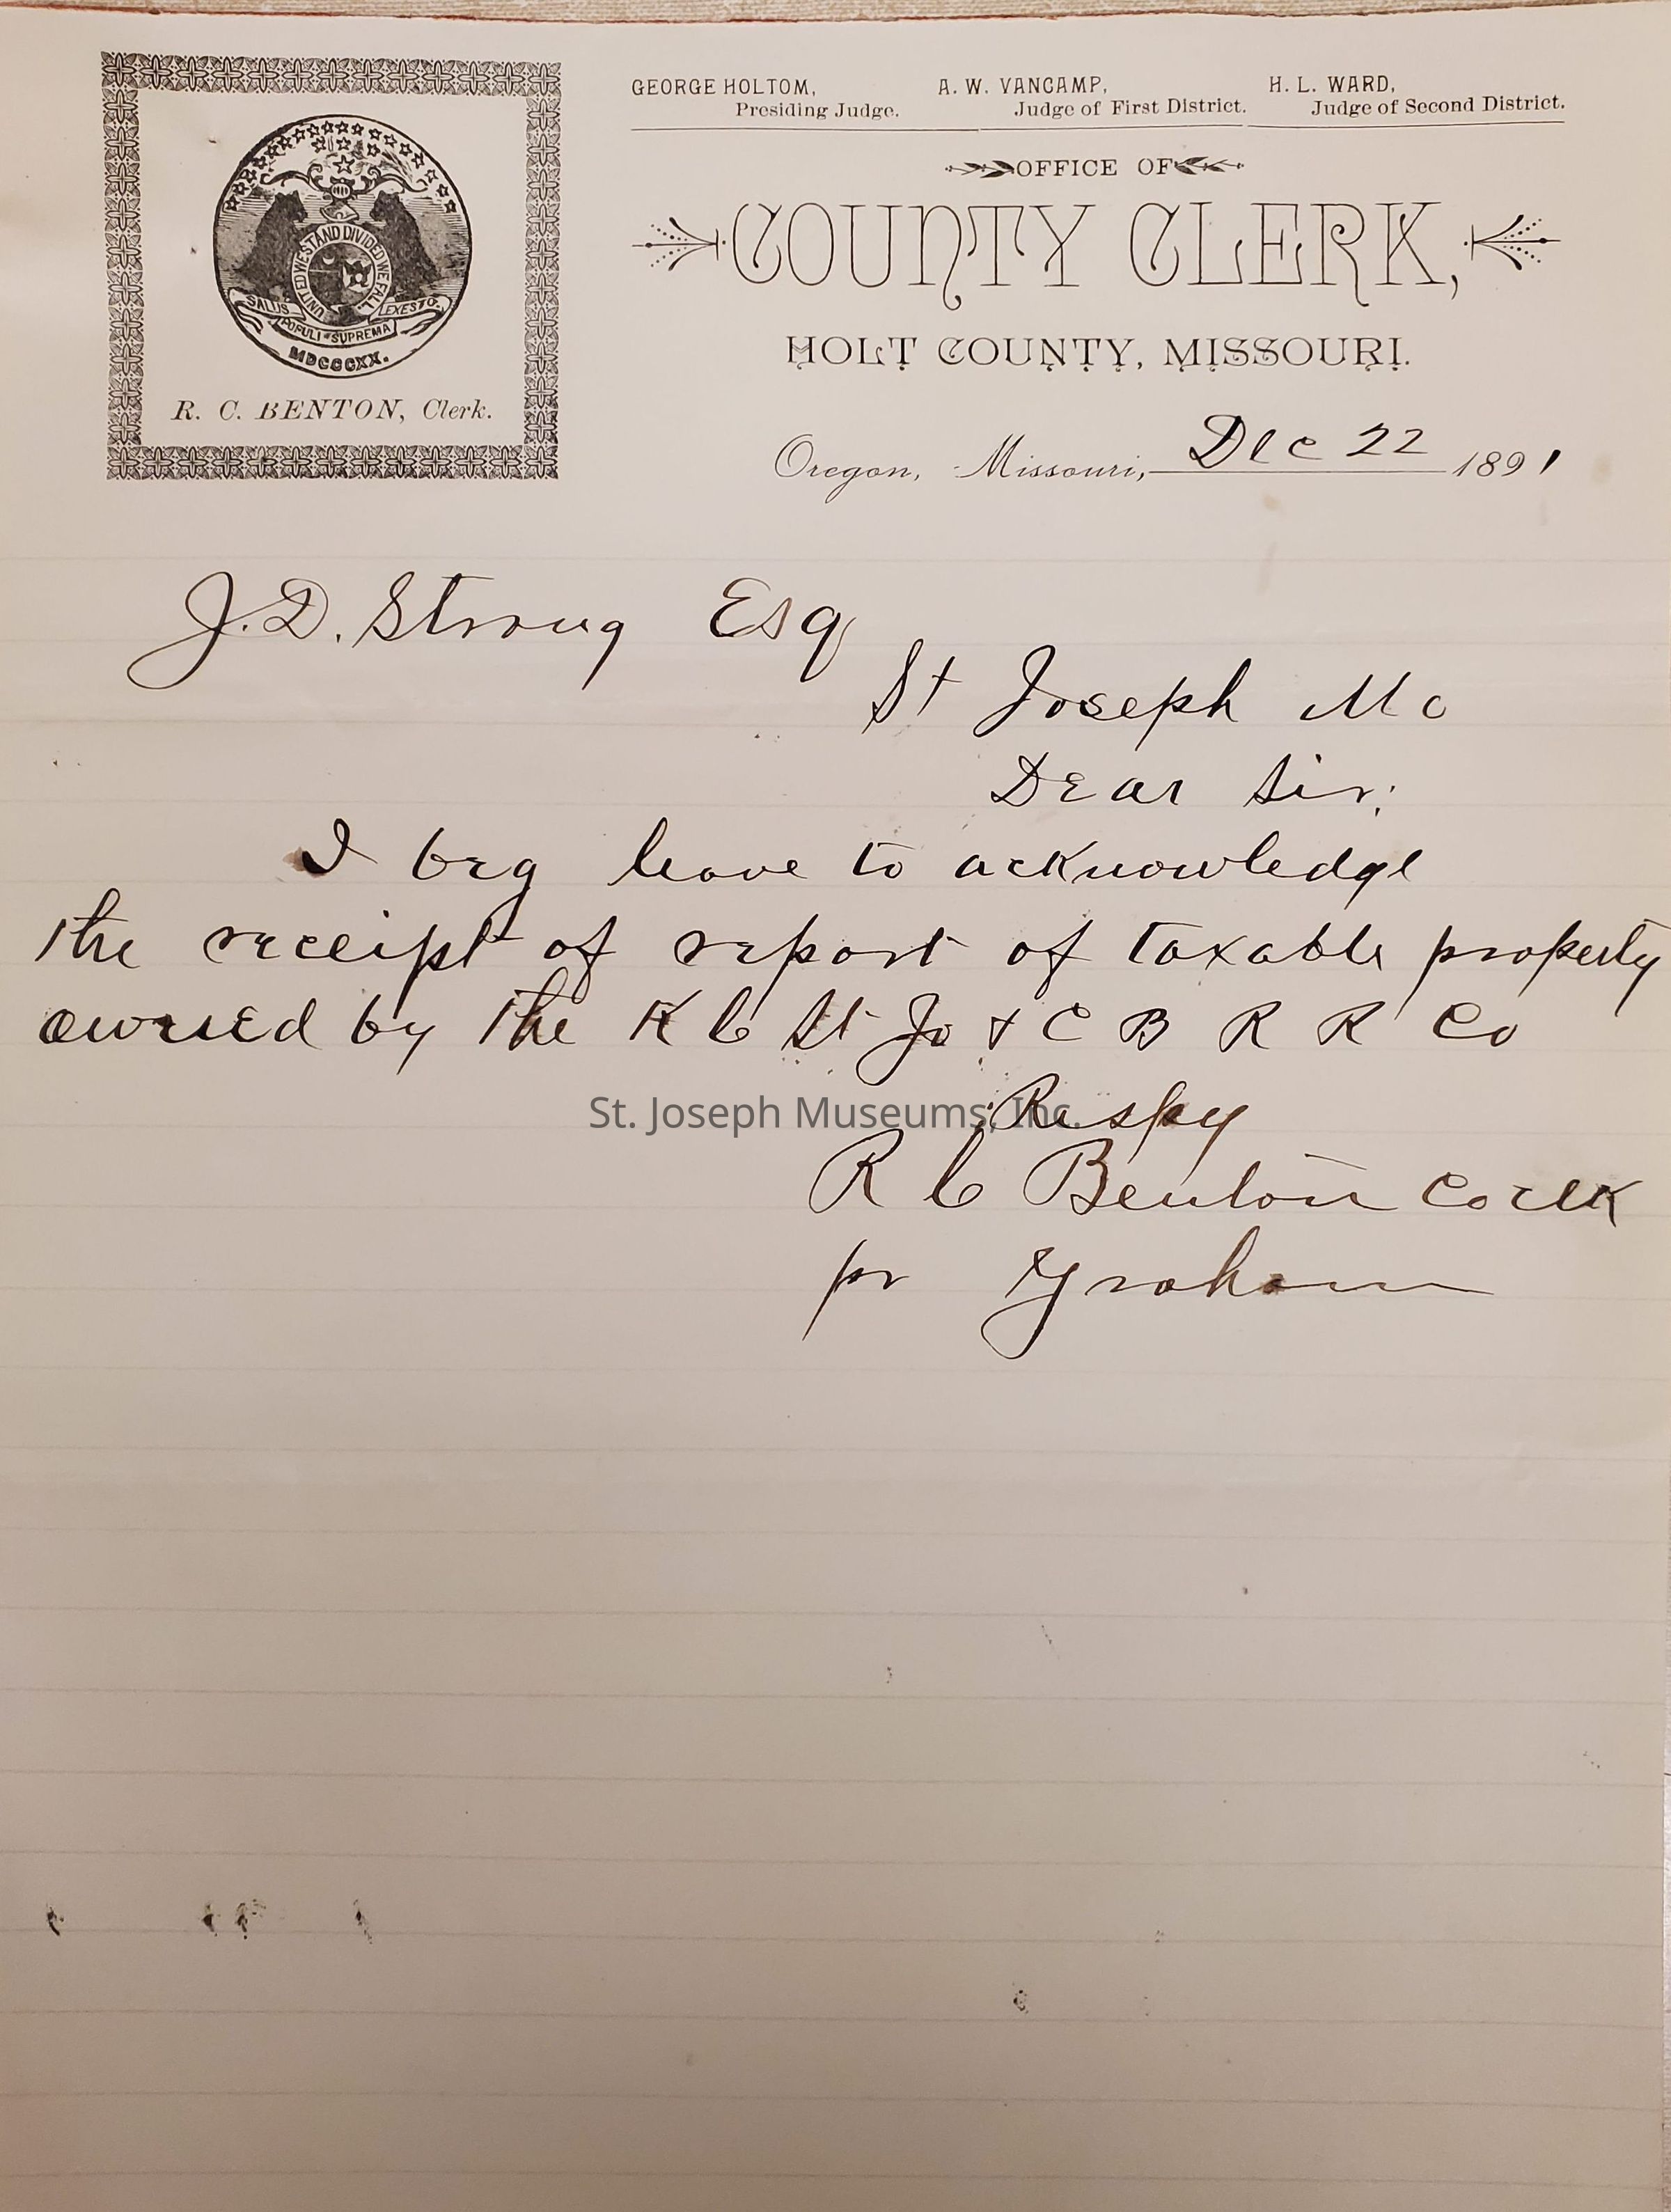 GEORGE HOLTOM, A. W. VANCAMP, H. L. WARD,
Presiding Judge. Judge of First District. Judge of Second District.
OFFICE OF
COUNTY CLERK,
HOLT COUNTY, MISSOURI.
UNITED WE STAND DIVIDED WE FALL
SALUS POPULI SUPREMA EXESTO
MDCCCXX.
R. C. BENTON, Clerk.
Oregon, Missouri, Dec 22 1891
J. D. Strong Esq
St Joseph Mo
Dear Sir;
I beg leave to acknowledge
the receipt of report of taxable property
owned by the K C St Jo & C B R R Co
Respy
St. Joseph Museums, Inc.
R C Benton Co clk
pr Graham